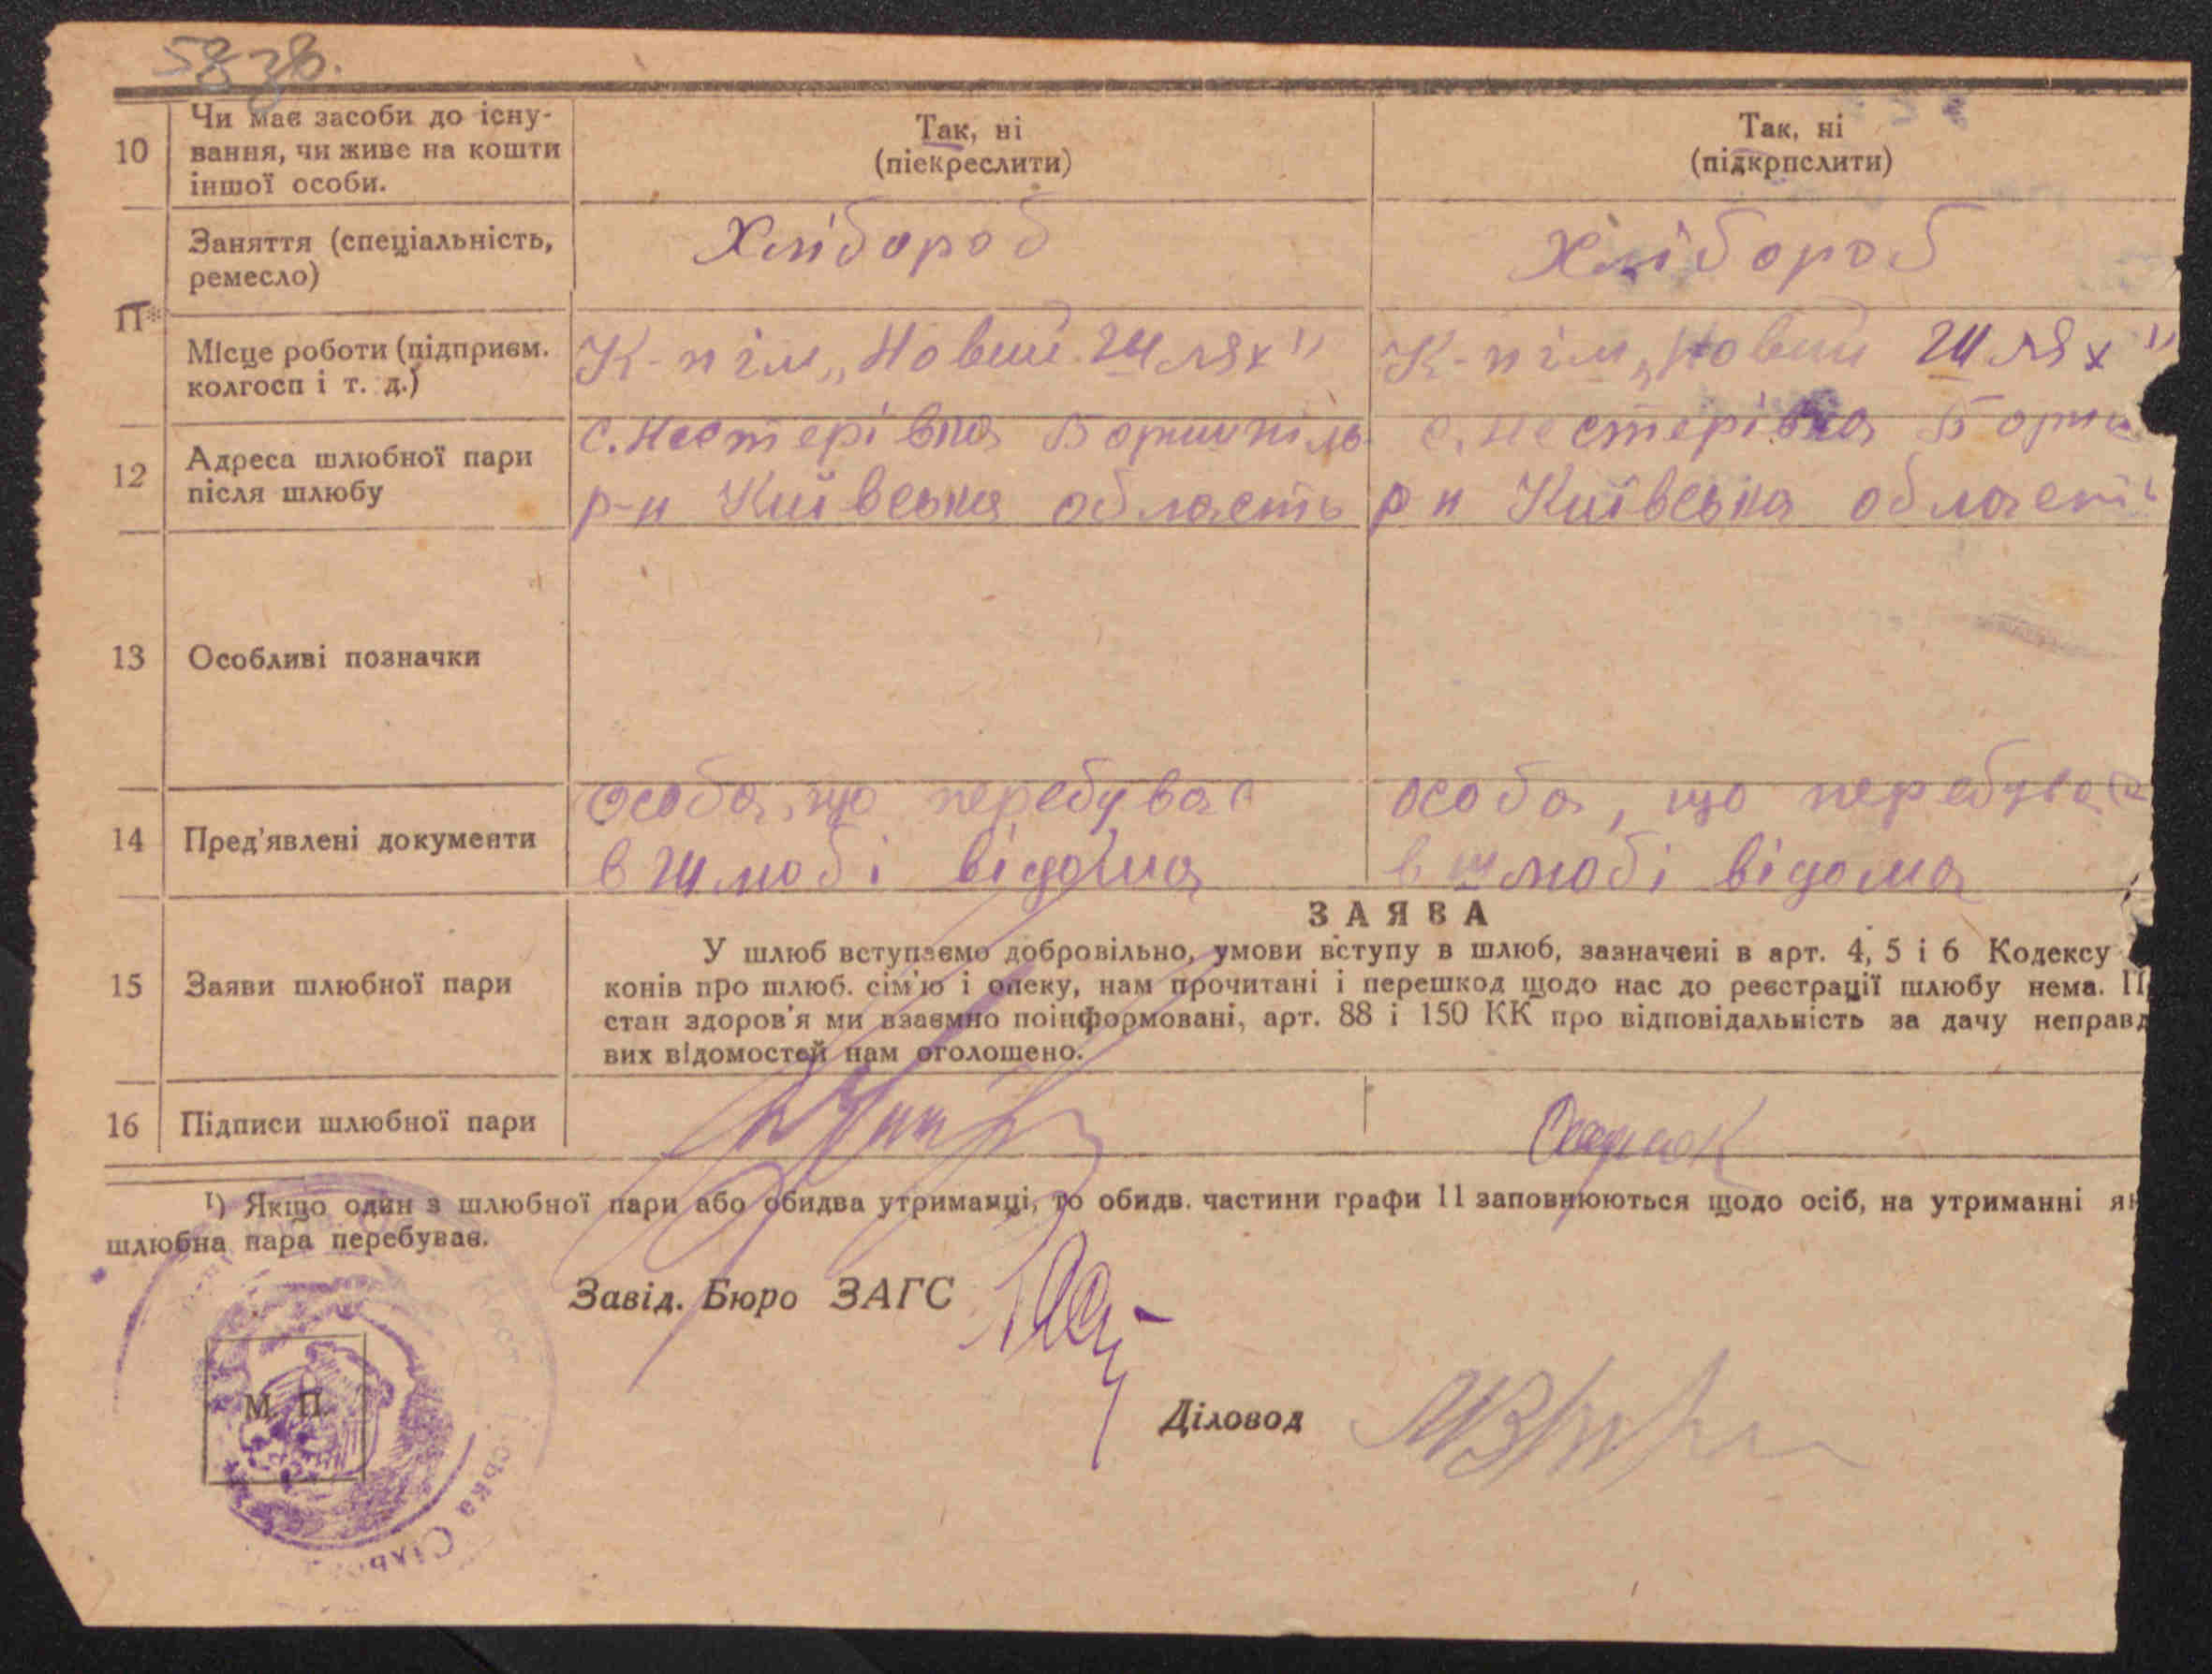 10
Чи має засоби до існу-
вання, чи живе на кошти
іншої особи.
Так, ні
(піекреслити)
Так, ні
(підкрпслити)
11
Заняття (спеціальність,
ремесло)
Хлібороб
Хлібороб
Місце роботи (підприєм.
колгосп і т. д.)
К-п ім „Новий Шлях"
К-п ім „Новий Шлях"
12
Адреса шлюбної пари
після шлюбу
с. Нестерівка Бориспіль
р-н Київська область
с. Нестерівка Борисп
р н Київська область
13
Особливі позначки
14
Пред'явлені документи
особа, що перебуває
в шлюбі відома
особа, що перебуває
в шлюбі відома
15
Заяви шлюбної пари
ЗАЯВА
У шлюб вступаємо добровільно, умови вступу в шлюб, зазначені в арт. 4, 5 і 6 Кодексу
конів про шлюб. сім'ю і опеку, нам прочитані і перешкод щодо нас до реєстрації шлюбу нема. П
стан здоров'я ми взаємно поінформовані, арт. 88 і 150 КК про відповідальність за дачу неправд
вих відомостей нам оголошено.
16
Підписи шлюбної пари
¹) Якщо один з шлюбної пари або обидва утриманці, то обидв. частини графи 11 заповнюються щодо осіб, на утриманні як
шлюбна пара перебуває.
Завід. Бюро ЗАГС
М. П.
Діловод